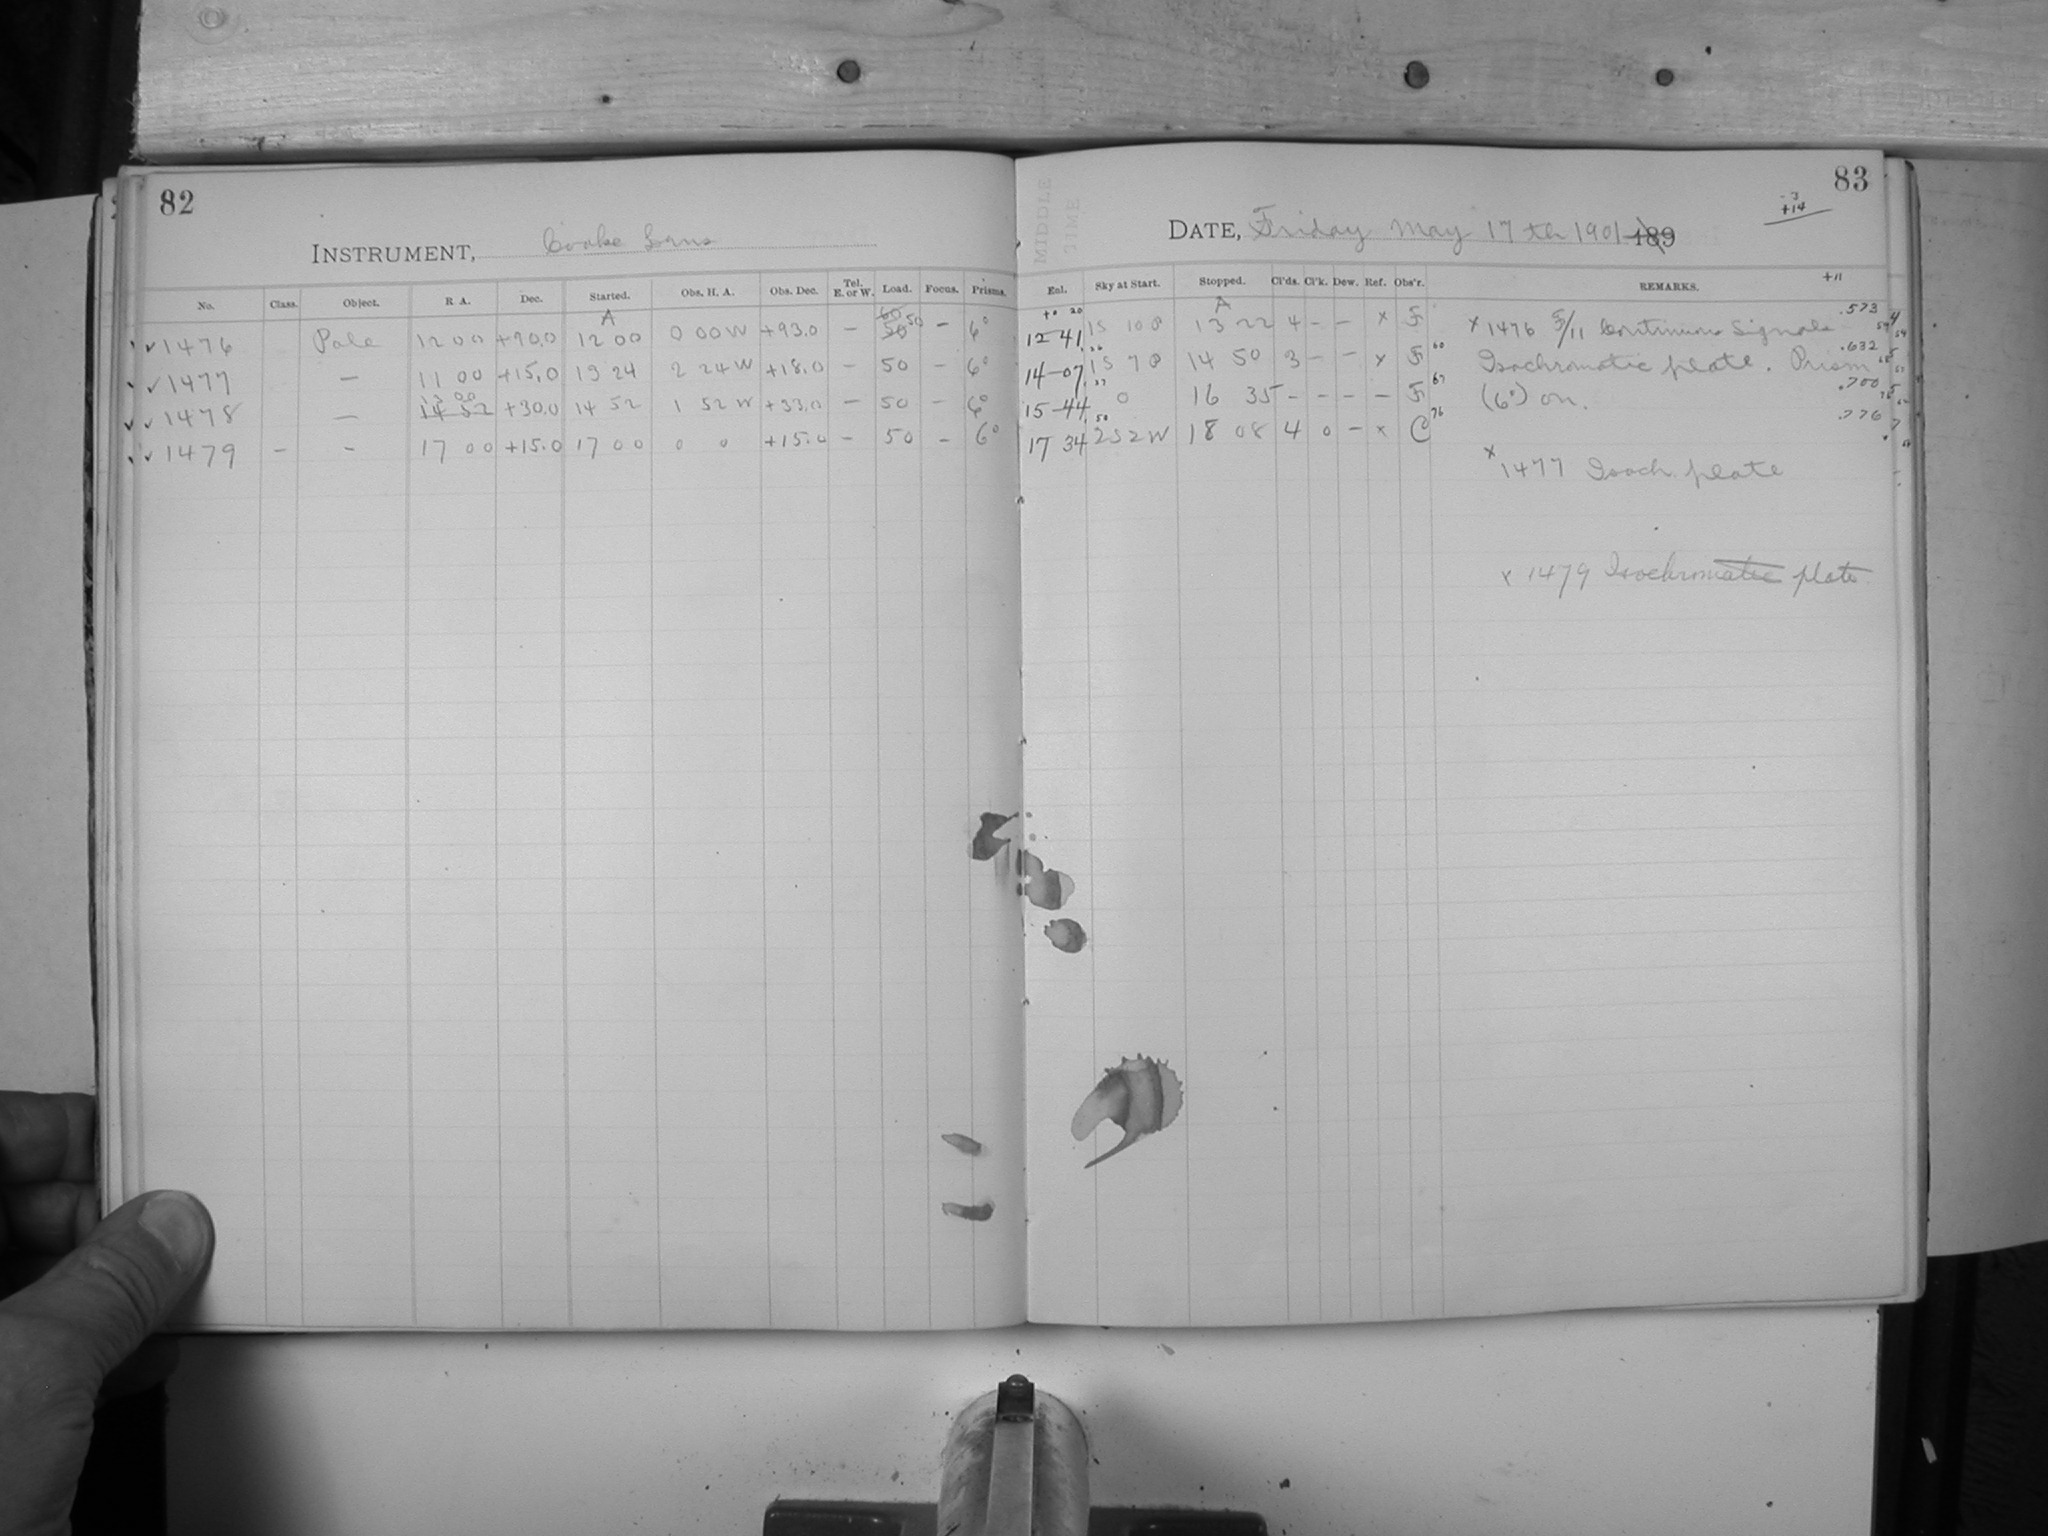 82
INSTRUMENT, Cooke Lens
No. Class. Object. R A. Dec. Started. Obs. H. A. Obs. Dec. Tel. E. or W. Load. Focus. Prisms.
1476 Pole 12 00 +90.0 A 12 00 0 00 W +93.0 – 50 – 6°
1477 – 11 00 +15.0 13 24 2 24 W +18.0 – 50 – 6°
1478 – 13 00 14 52 +30.0 14 52 1 52 W +33.0 – 50 – 6°
1479 – – 17 00 +15.0 17 00 0 0 +15.0 – 50 – 6°
83
MIDDLE TIME
-3
+14
DATE, Friday May 17th 1901 189
+11
Enl. Sky at Start. Stopped. Cl'ds. Cl'k. Dew. Ref. Obs'r. REMARKS.
12-41 1S 10P A 13 22 4 – – x F x 1476 F/11 Continuous Signals .573
14-07 1S 7P 14 50 3 – – x F 60 Isochromatic plate. Prism .632
15-44 0 16 35 – – – – F 67 (6°) on. .700
17 34 2S2W 18 08 4 0 – x C 76 .776
x 1477 Isoch. plate
x 1479 Isochromatic plate